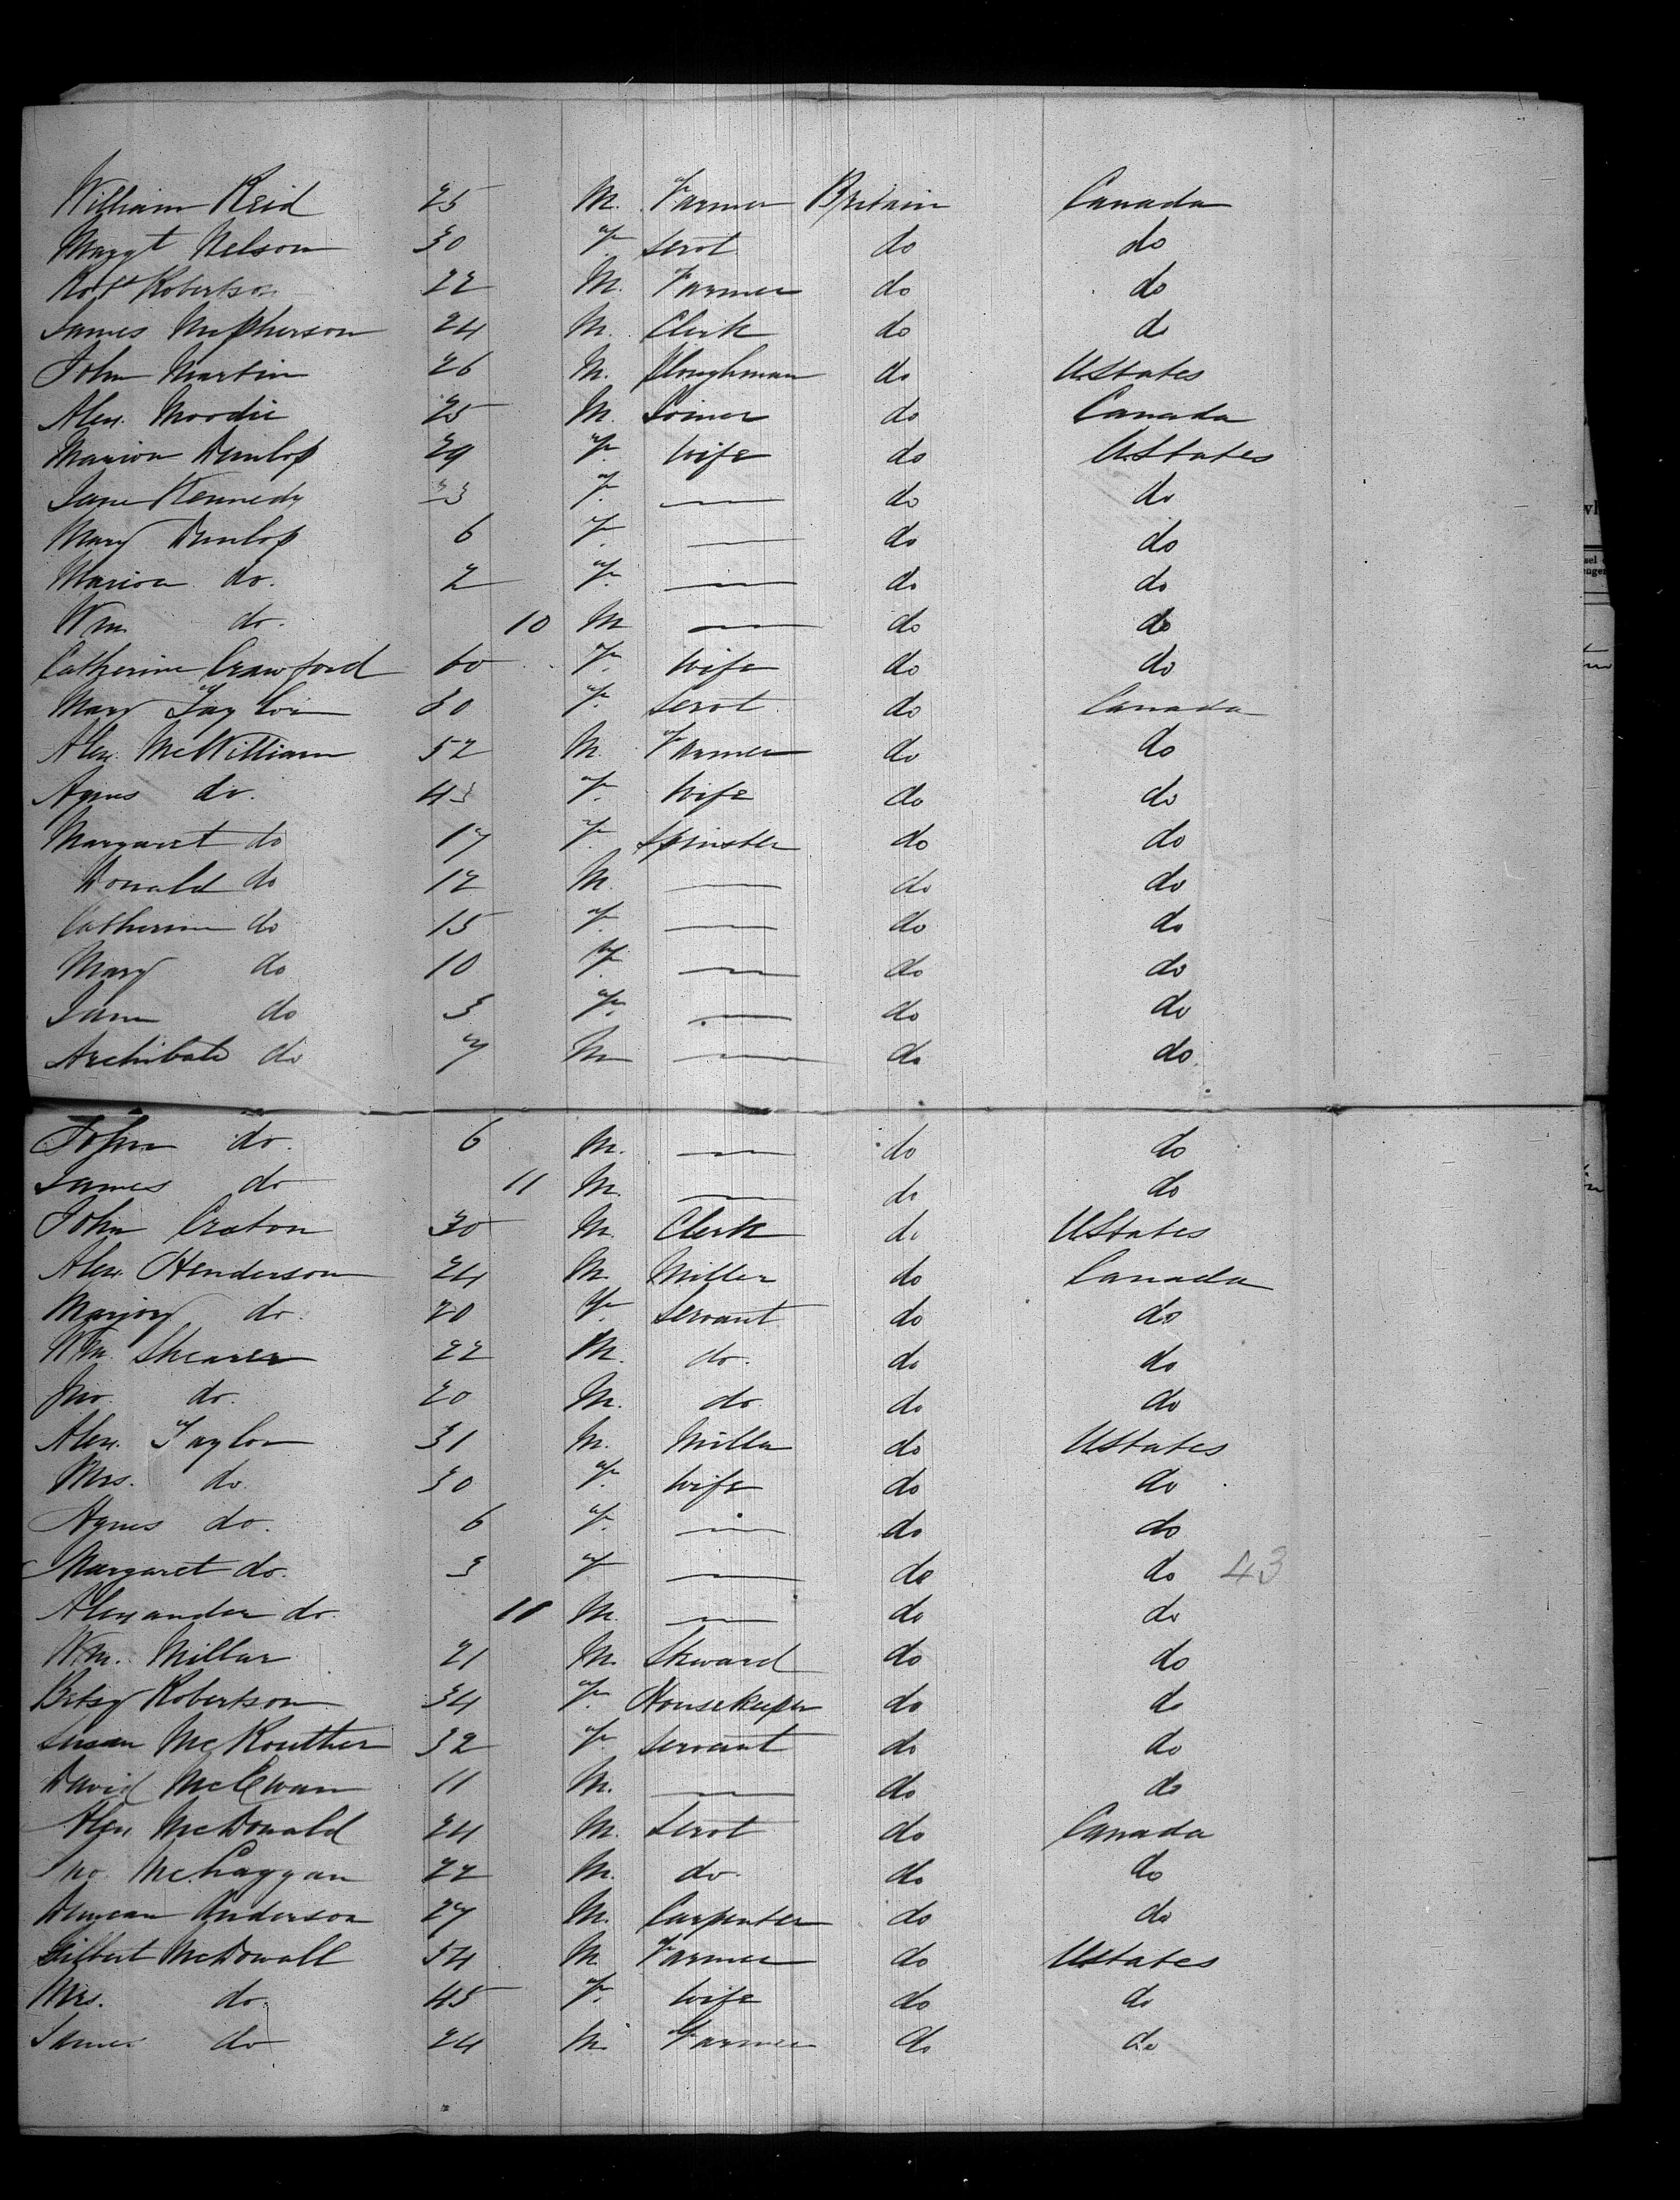 William Reid 25 M. Farmer Britain Canada
Margt Nelson 30 F. Servt do do
Robt Robertson 22 M. Farmer do do
James McPherson 24 M. Clerk do do
John Martin 26 M. Ploughman do UStates
Alex. Moodie 25 M. Joiner do Canada
Marion Dunlop 29 F. Wife do UStates
Jane Kennedy 33 F. — do do
Mary Dunlop 6 F. — do do
Marion do. 2 F. — do do
Wm do. 10 M — do do
Catherine Crawford 60 F. Wife do do
Mary Taylor 30 F. Servt. do Canada
Alex. McWilliam 52 M. Farmer do do
Agnes do. 43 F. Wife do do
Margaret do 17 F. Spinster do do
Donald do 12 M. — do do
Catherine do 15 F. — do do
Mary do 10 F. — do do
Jane do 3 F. — do do
Archibald do 7 M — do do.
John do. 6 M. — do do
James do 11 M. — do do
John Craton 30 M. Clerk do UStates
Alex. Henderson 24 M. Miller do Canada
Marjory do. 20 F. Servant do do
Wm. Shearer 22 M. do. do do
Jno. do. 20 M. do. do do
Alex. Taylor 31 M. Miller do UStates
Mrs. do. 30 F. Wife do do
Agnes do. 6 F. — do do
Margaret do. 3 F — do do 43
Alexander do. 11 M. — do do
Wm. Millar 21 M. Steward do do
Betsy Robertson 34 F. Housekeeper do do
Susan McRouther 32 F. Servant do do
David McEwan 11 M. — do do
Alex McDonald 24 M. Servt do Canada
Jno. 22 M. do. do do
Duncan Anderson 27 M. Carpenter do do
Gilbert McDowall 54 M Farmer do UStates
Mrs. do. 45 F. Wife do do
James do 24 M. Farmer do do